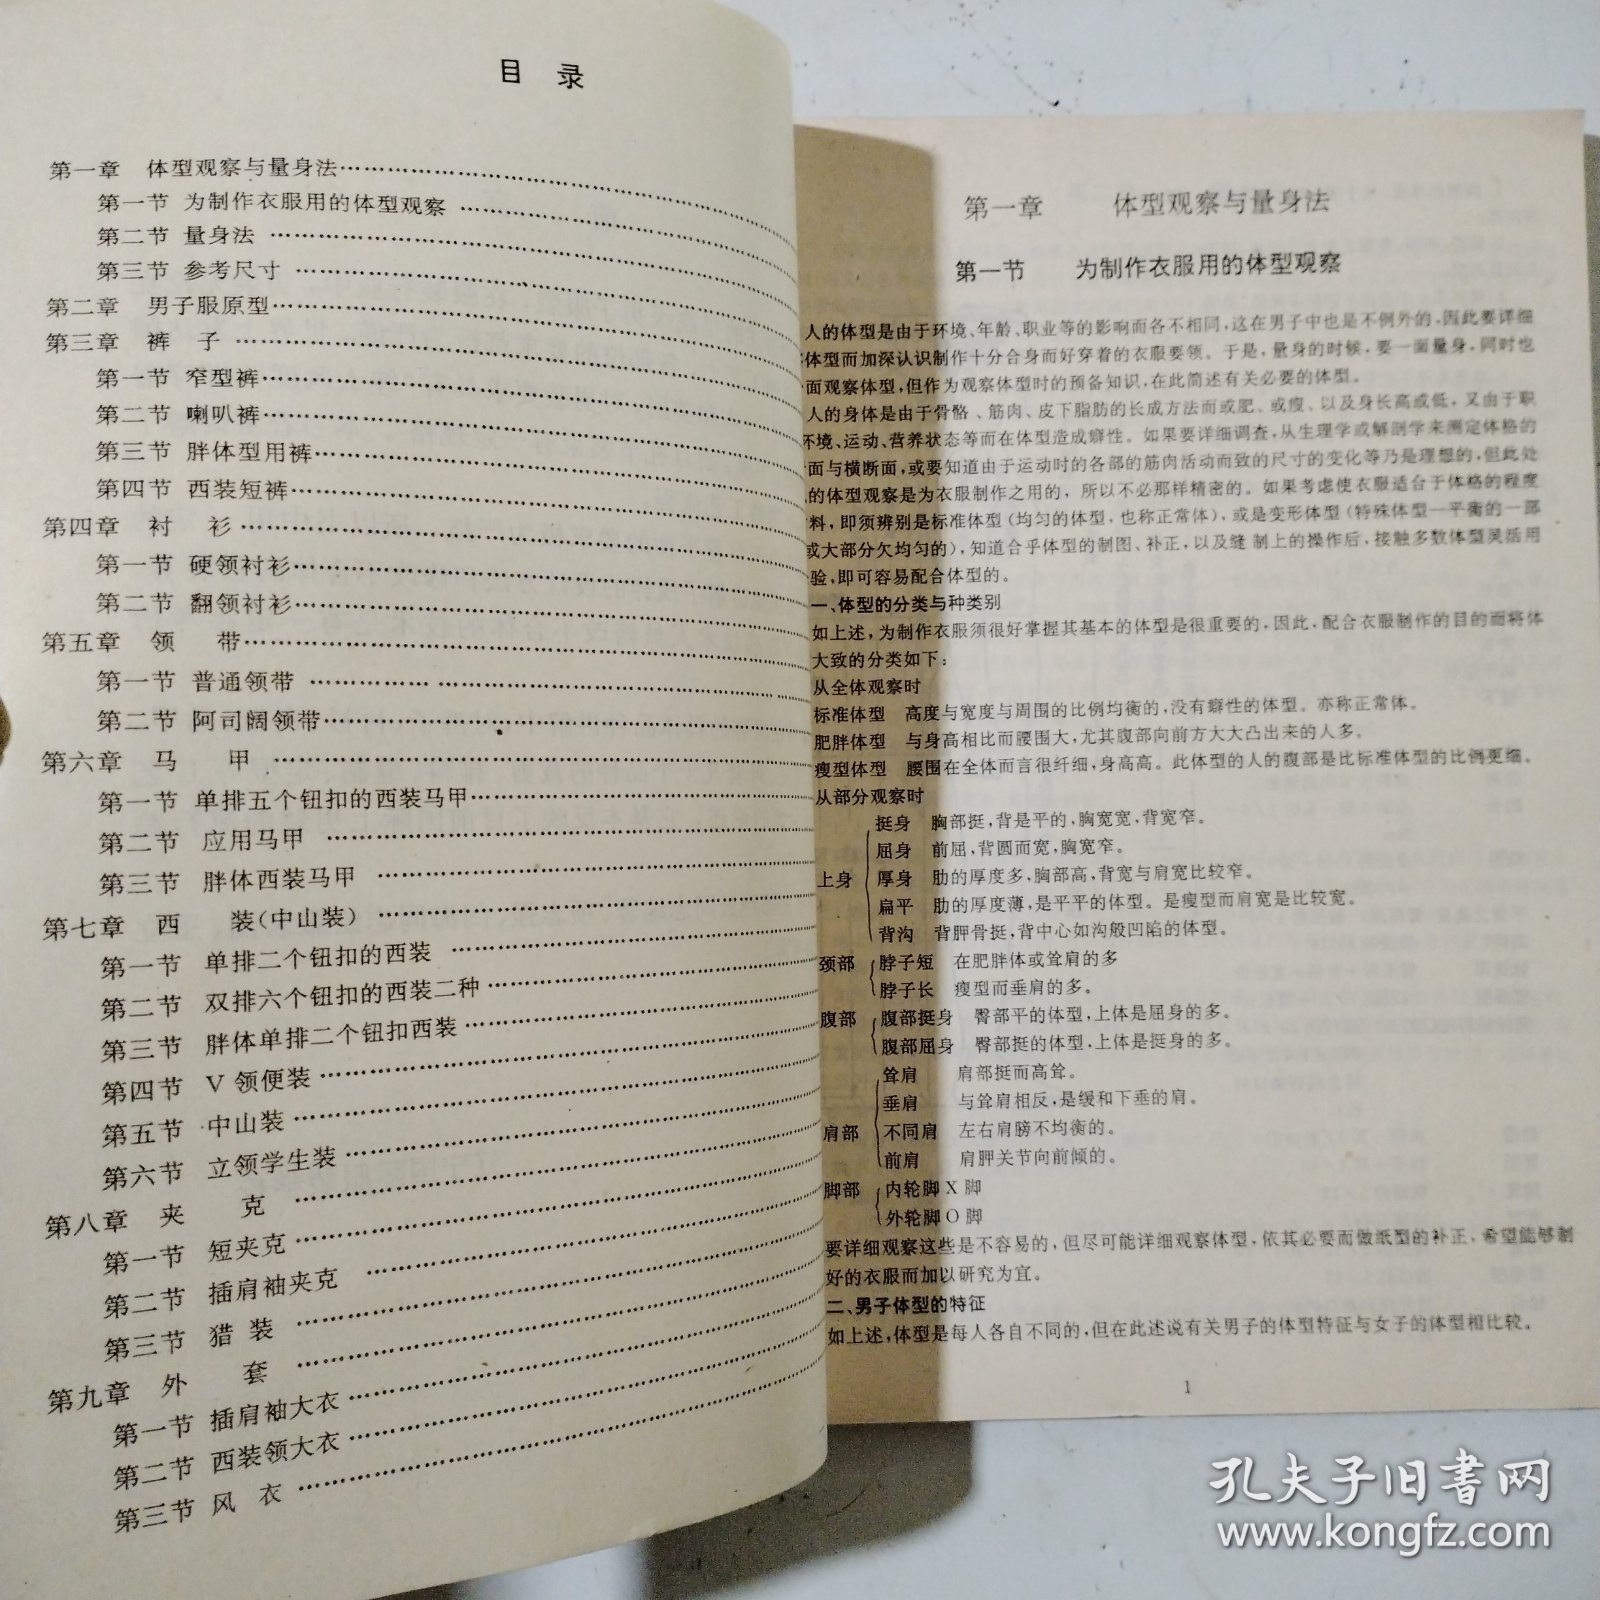 目 录
第一章 体型观察与量身法
第一节 为制作衣服用的体型观察
第二节 量身法
第三节 参考尺寸
第二章 男子服原型
第三章 裤 子
第一节 窄型裤
第二节 喇叭裤
第三节 胖体型用裤
第四节 西装短裤
第四章 衬 衫
第一节 硬领衬衫
第二节 翻领衬衫
第五章 领 带
第一节 普通领带
第二节 阿司阔领带
第六章 马 甲
第一节 单排五个钮扣的西装马甲
第二节 应用马甲
第三节 胖体西装马甲
第七章 西 装(中山装)
第一节 单排二个钮扣的西装
第二节 双排六个钮扣的西装二种
第三节 胖体单排二个钮扣西装
第四节 V 领便装
第五节 中山装
第六节 立领学生装
第八章 夹 克
第一节 短夹克
第二节 插肩袖夹克
第三节 猎 装
第九章 外 套
第一节 插肩袖大衣
第二节 西装领大衣
第三节 风 衣
第一章 体型观察与量身法
第一节 为制作衣服用的体型观察
人的体型是由于环境、年龄、职业等的影响而各不相同,这在男子中也是不例外的,因此要详细
体型而加深认识制作十分合身而好穿着的衣服要领。于是,量身的时候,要一面量身,同时也
面观察体型,但作为观察体型时的预备知识,在此简述有关必要的体型。
人的身体是由于骨骼、筋肉、皮下脂肪的长成方法而或肥、或瘦、以及身长高或低,又由于职
环境、运动、营养状态等而在体型造成癖性。如果要详细调查,从生理学或解剖学来测定体格的
面与横断面,或要知道由于运动时的各部的筋肉活动而致的尺寸的变化等乃是理想的,但此处
的体型观察是为衣服制作之用的,所以不必那样精密的。如果考虑使衣服适合于体格的程度
料,即须辨别是标准体型(均匀的体型,也称正常体),或是变形体型(特殊体型—平衡的一部
或大部分欠均匀的),知道合乎体型的制图、补正,以及缝制上的操作后,接触多数体型灵活用
验,即可容易配合体型的。
一、体型的分类与种类别
如上述,为制作衣服须很好掌握其基本的体型是很重要的,因此,配合衣服制作的目的而将体
大致的分类如下:
从全体观察时
标准体型 高度与宽度与周围的比例均衡的,没有癖性的体型。亦称正常体。
肥胖体型 与身高相比而腰围大,尤其腹部向前方大大凸出来的人多。
瘦型体型 腰围在全体而言很纤细,身高高。此体型的人的腹部是比标准体型的比例更细。
从部分观察时
挺身 胸部挺,背是平的,胸宽宽,背宽窄。
屈身 前屈,背圆而宽,胸宽窄。
上身 厚身 肋的厚度多,胸部高,背宽与肩宽比较窄。
扁平 肋的厚度薄,是平平的体型。是瘦型而肩宽是比较宽。
背沟 背胛骨挺,背中心如沟般凹陷的体型。
颈部 脖子短 在肥胖体或耸肩的多
脖子长 瘦型而垂肩的多。
腹部 腹部挺身 臀部平的体型,上体是屈身的多。
腹部屈身 臀部挺的体型,上体是挺身的多。
耸肩 肩部挺而高耸。
垂肩 与耸肩相反,是缓和下垂的肩。
肩部 不同肩 左右肩膀不均衡的。
前肩 肩胛关节向前倾的。
脚部 内轮脚 X 脚
外轮脚 O 脚
要详细观察这些是不容易的,但尽可能详细观察体型,依其必要而做纸型的补正,希望能够制
好的衣服而加以研究为宜。
二、男子体型的特征
如上述,体型是每人各自不同的,但在此述说有关男子的体型特征与女子的体型相比较。
1
孔夫子旧书网
www.kongfz.com